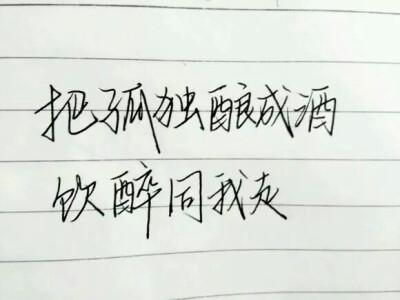 把孤独酿成酒
饮醉同我走